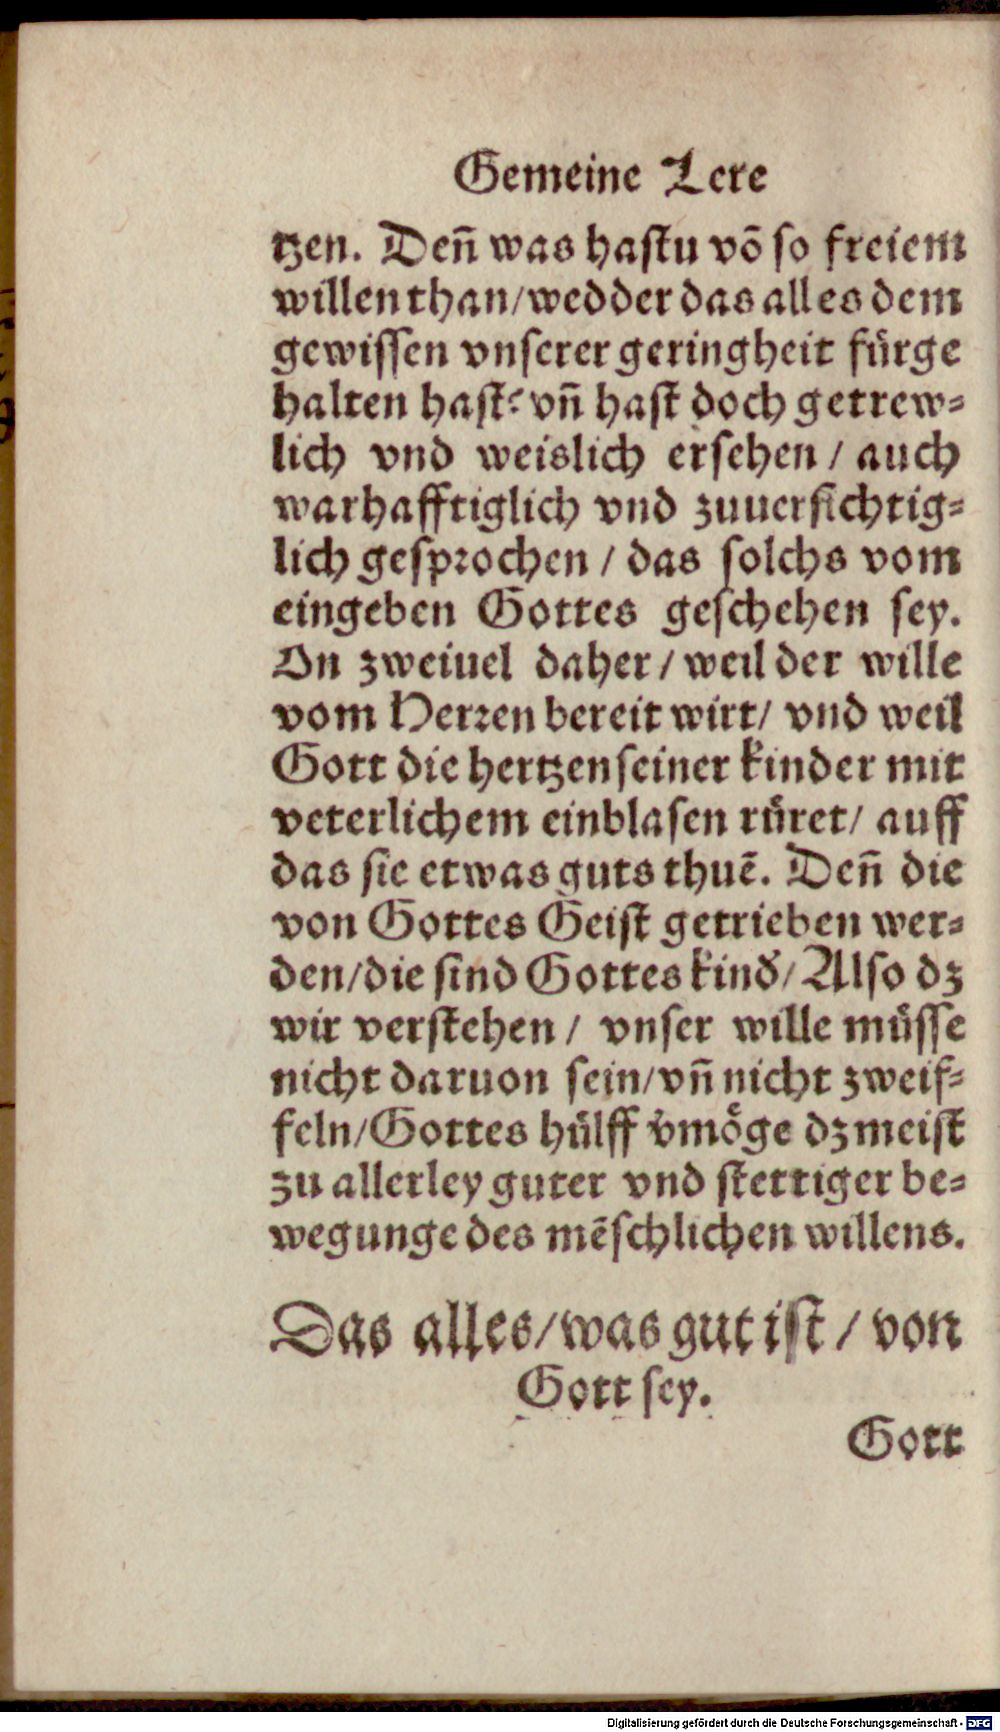 Gemeine Lere
tzen. Deñ was hastu võ so freiem
willen than/wedder das alles dem
gewissen vnserer geringheit fürge
halten hast? vñ hast doch getrew⸗
lich vnd weislich ersehen / auch
warhafftiglich vnd zuuersichtig⸗
lich gesprochen / das solchs vom
eingeben Gottes geschehen sey.
On zweiuel daher / weil der wille
vom Herren bereit wirt/ vnd weil
Gott die hertzen seiner kinder mit
veterlichem einblasen rüret/ auff
das sie etwas guts thuẽ. Deñ die
von Gottes Geist getrieben wer⸗
den/die sind Gottes kind/ Also dz
wir verstehen / vnser wille müsse
nicht daruon sein/vñ nicht zweif⸗
feln/Gottes hülff v̓möge dz meist
zu allerley guter vnd stettiger be⸗
wegunge des mẽschlichen willens.
Das alles/was gut ist / von
Gott sey.
Gott
Digitalisierung gefördert durch die Deutsche Forschungsgemeinschaft - DFG